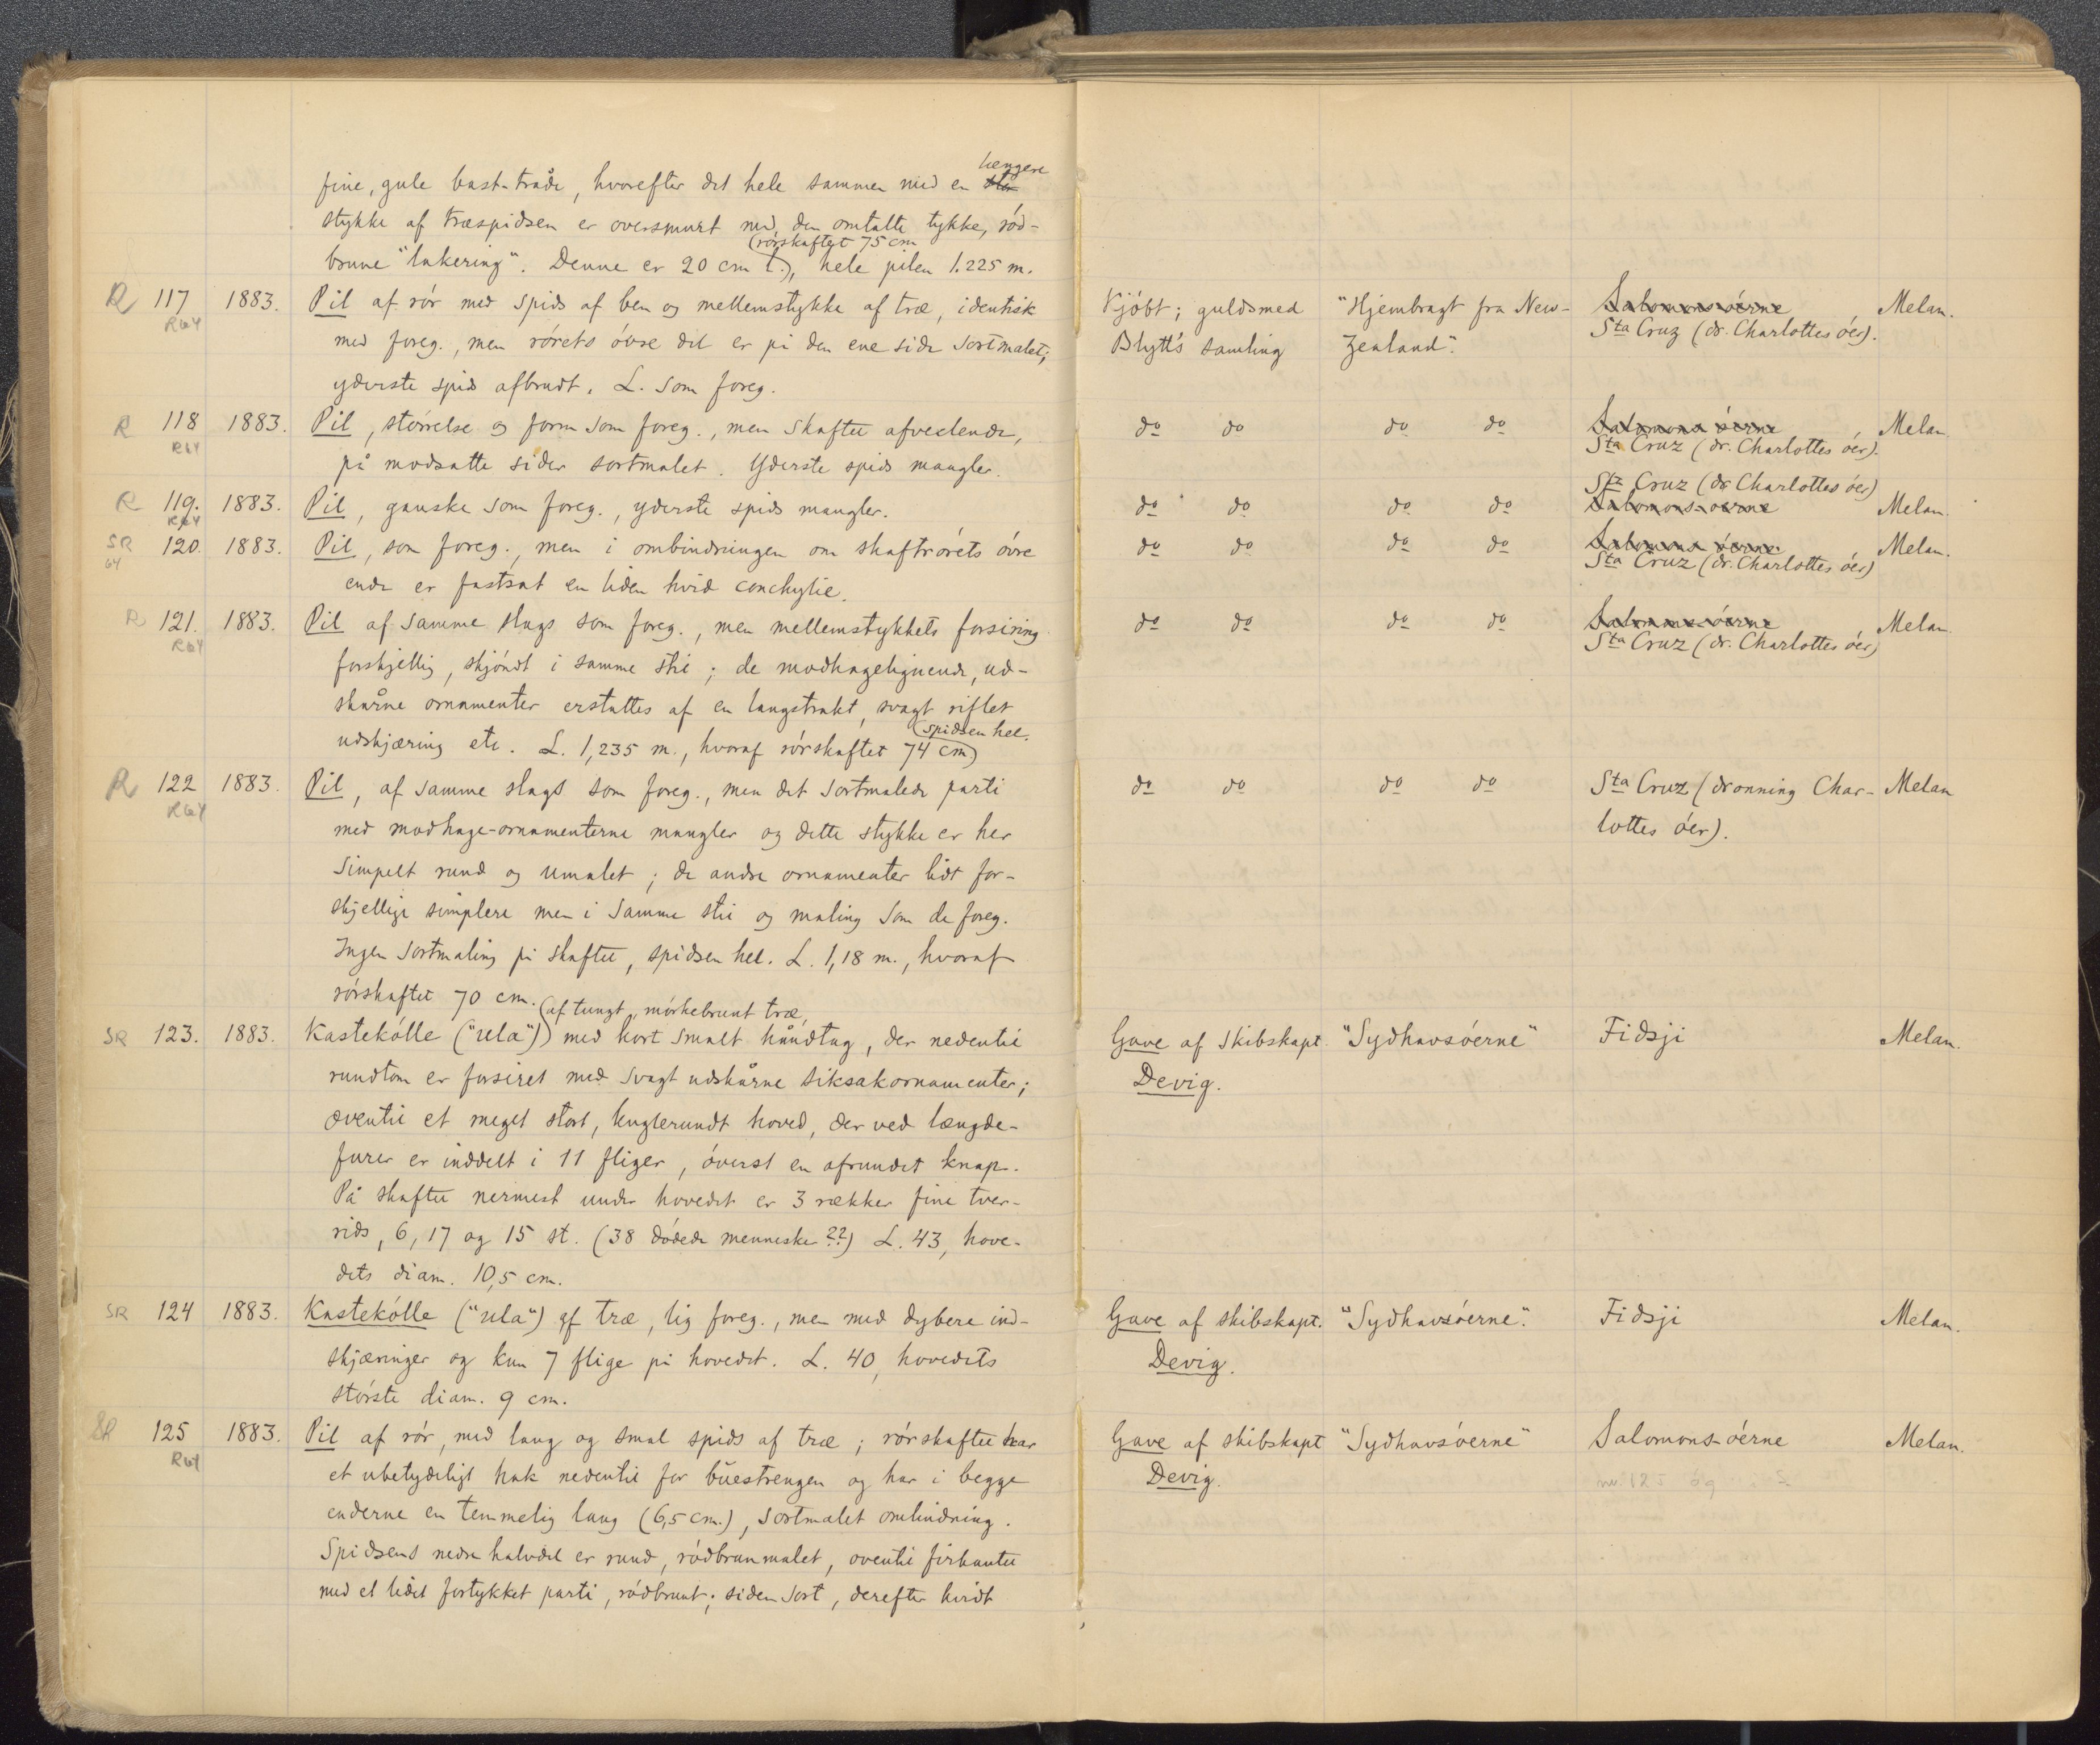 længere
fine, gule bast-tråde, hvorefter det hele sammen med en
stykke af træspidsen er oversmurt med den omtalte tykke, rød-
(rørskaftet 75 cm
brune "lakering". Denne er 20 cm l.), hele pilen 1.225 m.
R 117 1883. Pil af rør med spids af ben og mellemstykke af træ, identisk Kjøbt; guldsmed "Hjembragt fra New- Salomonsøerne Melan.
R64 med foreg., men rørets øvre del er på den ene side sortmalet; Blytt's samling Zealand". Sta Cruz (dr. Charlottes øer).
yderste spids afbrudt. L. som foreg.
R 118 1883. Pil, størrelse og form som foreg., men skaftet afvexlende, do do do do Salomons øerne Melan
R64 på modsatte sider sortmalet. Yderste spids mangler. Sta Cruz (dr. Charlottes øer).
Sta Cruz (dr Charlottes øer)
R 119. 1883. Pil, ganske som foreg., yderste spids mangler. do do do do Salomons-øerne Melan.
R64
SR 120. 1883. Pil, som foreg., men i ombindningen om skaftrørets øvre do do do do Salomons øerne Melan.
64 ende er fastsat en liden hvid conchylie. Sta Cruz (dr. Charlottes øer)
R 121. 1883. Pil af samme slags som foreg., men mellemstykkets forsiring do do do do Salomonsøerne Melan.
R64 forskjellig, skjøndt i samme stil; de modhagelignende, ud- Sta Cruz (dr. Charlottes øer)
skårne ornamenter erstattes af en langstrakt, svagt riflet
(spidsen hel.
udskjæring etc. L. 1,235 m., hvoraf rørskaftet 74 cm)
R 122 1883. Pil, af samme slags som foreg., men det sortmalede parti do do do do Sta Cruz (dronning Char- Melan
R64 med modhage-ornamenterne mangler og dette stykke er her lottes øer).
simpelt rund og umalet; de andre ornamenter lidt for-
skjellige simplere men i samme stil og maling som de foreg.
Ingen sortmaling på skaftet, spidsen hel. L. 1,18 m., hvoraf
rørskaftet 70 cm.
(af tungt, mørkebrunt træ,
SR 123. 1883. Kastekølle ("ula") med kort smalt håndtag, der nedentil Gave af skibskapt. "Sydhavsøerne" Fidsji Melan.
rundtom er forsiret med svagt udskårne siksakornamenter; Devig.
oventil et meget stort, kuglerundt hoved, der ved længde-
furer er inddelt i 11 fliger, øverst en afrundet knap.
På skaftet nermest under hovedet er 3 rækker fine tver-
rids, 6, 17 og 15 st. (38 dødede menneske??) L. 43, hove-
dets diam. 10,5 cm.
SR 124 1883. Kastekølle ("ula") af træ, lig foreg., men med dybere ind- Gave af skibskapt. "Sydhavsøerne". Fidsji Melan.
skjæringer og kun 7 flige på hovedet. L. 40, hovedets Devig.
største diam. 9 cm.
SR 125 1883. Pil af rør, med lang og smal spids af træ; rørskaftet har Gave af skibskapt "Sydhavsøerne" Salomons-øerne Melan.
R64 et ubetydeligt hak nedentil for buestrengen og har i begge Devig.
enderne en temmelig lang (6,5 cm.), sortmalet ombindning.
Spidsens nedre halvdel er rund, rødbrunmalet, oventil firkantet
med et lidet fortykket parti, rødbrunt; siden sort, derefter hvidt